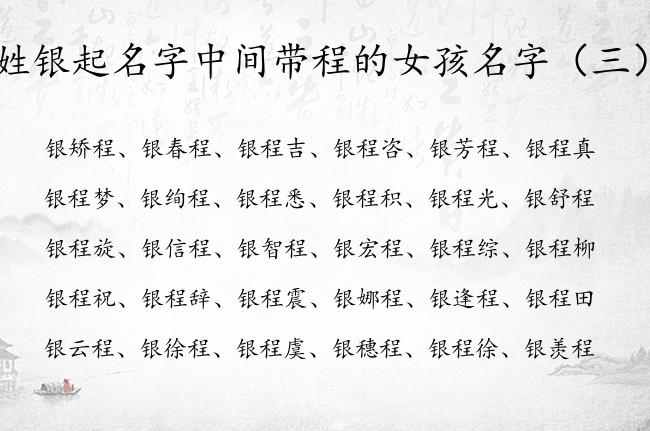 姓银起名字中间带程的女孩名字（三）
银矫程、银春程、银程吉、银程咨、银芳程、银程真
银程梦、银绚程、银程悉、银程积、银程光、银舒程
银程旋、银信程、银智程、银宏程、银程综、银程柳
银程祝、银程辞、银程震、银娜程、银逢程、银程田
银云程、银徐程、银程虞、银穗程、银程徐、银羡程